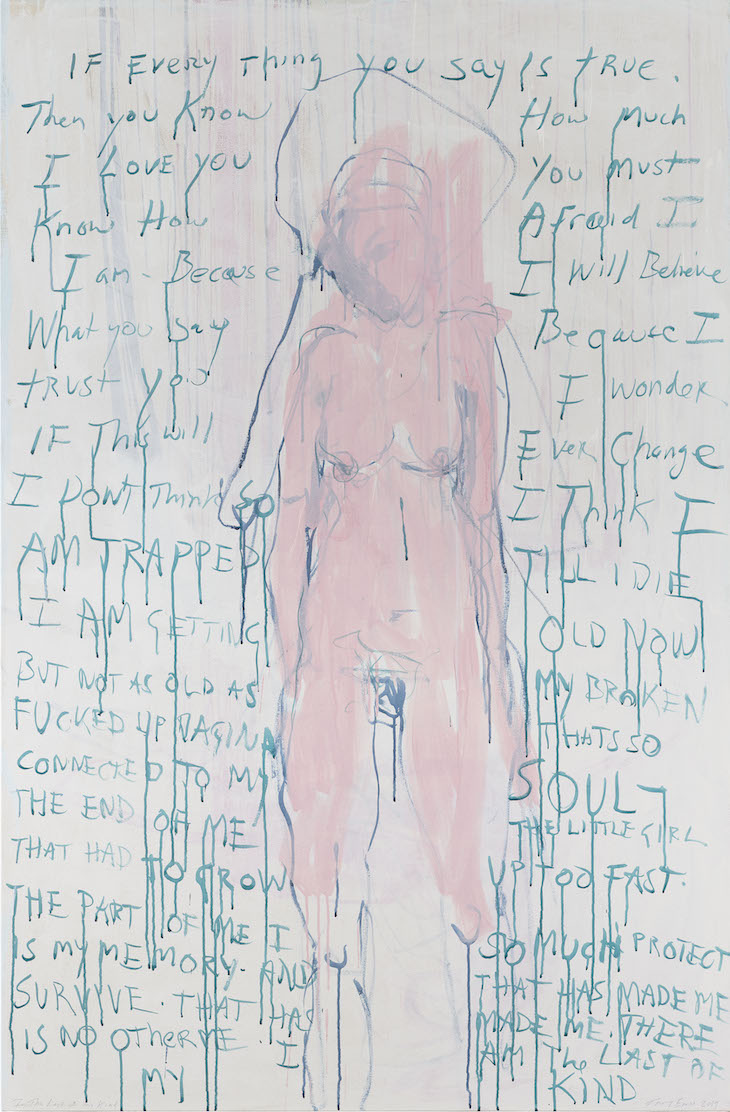 IF Every Thing you say is true.
Then you Know How much
I LOVE YOU You must
Know How Afraid I
I am - Because I will Believe
What you say Because I
trust you I wonder
IF This will Ever Change
I DONT Think SO I Think I
AM TRAPPED TILL I DIE
I AM GETTING OLD NOW
BUT NOT AS OLD AS MY BROKEN
FUCKED UP VAGINA THATS SO
CONNECTED TO MY SOUL -
THE END OF ME THE LITTLE GIRL
THAT HAD TO GROW UP TOO FAST.
THE PART OF ME I SO MUCH PROTECT
IS MY MEMORY. AND THAT HAS MADE ME
SURVIVE. THAT HAS MADE ME. THERE
IS NO OTHER ME. I AM The LAST OF
MY KIND